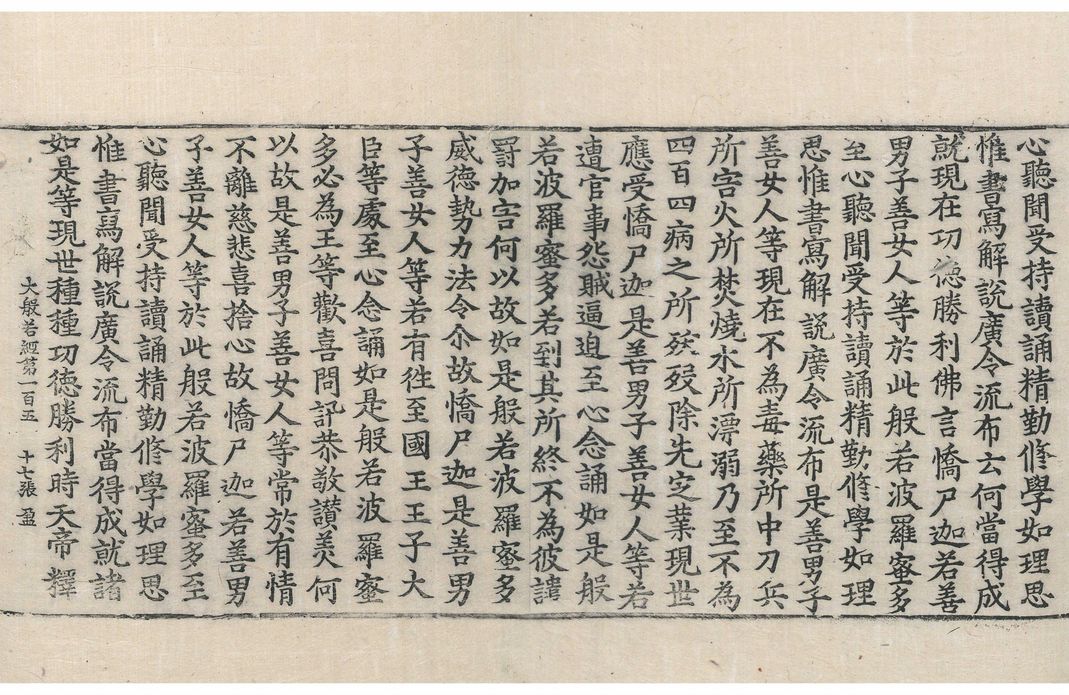 心聽聞受持讀誦精勤修學如理思
惟書寫解說廣令流布云何當得成
就現在功德勝利佛言憍尸迦若善
男子善女人等於此般若波羅蜜多
至心聽聞受持讀誦精勤修學如理
思惟書寫解說廣令流布是善男子
善女人等現在不為毒藥所中刀兵
所害火所焚燒水所漂溺乃至不為
四百四病之所殀歿除先定業現世
應受憍尸迦是善男子善女人等若
遭官事怨賊逼迫至心念誦如是般
若波羅蜜多若到其所終不為彼譴
罰加害何以故如是般若波羅蜜多
威德勢力法令尒故憍尸迦是善男
子善女人等若有往至國王王子大
臣等處至心念誦如是般若波羅蜜
多必為王等歡喜問訊恭敬讚美何
以故是善男子善女人等常於有情
不離慈悲喜捨心故憍尸迦若善男
子善女人等於此般若波羅蜜多至
心聽聞受持讀誦精勤修學如理思
惟書寫解說廣令流布當得成就諸
如是等現世種種功德勝利時天帝釋
大般若經第一百五 十七張 盈